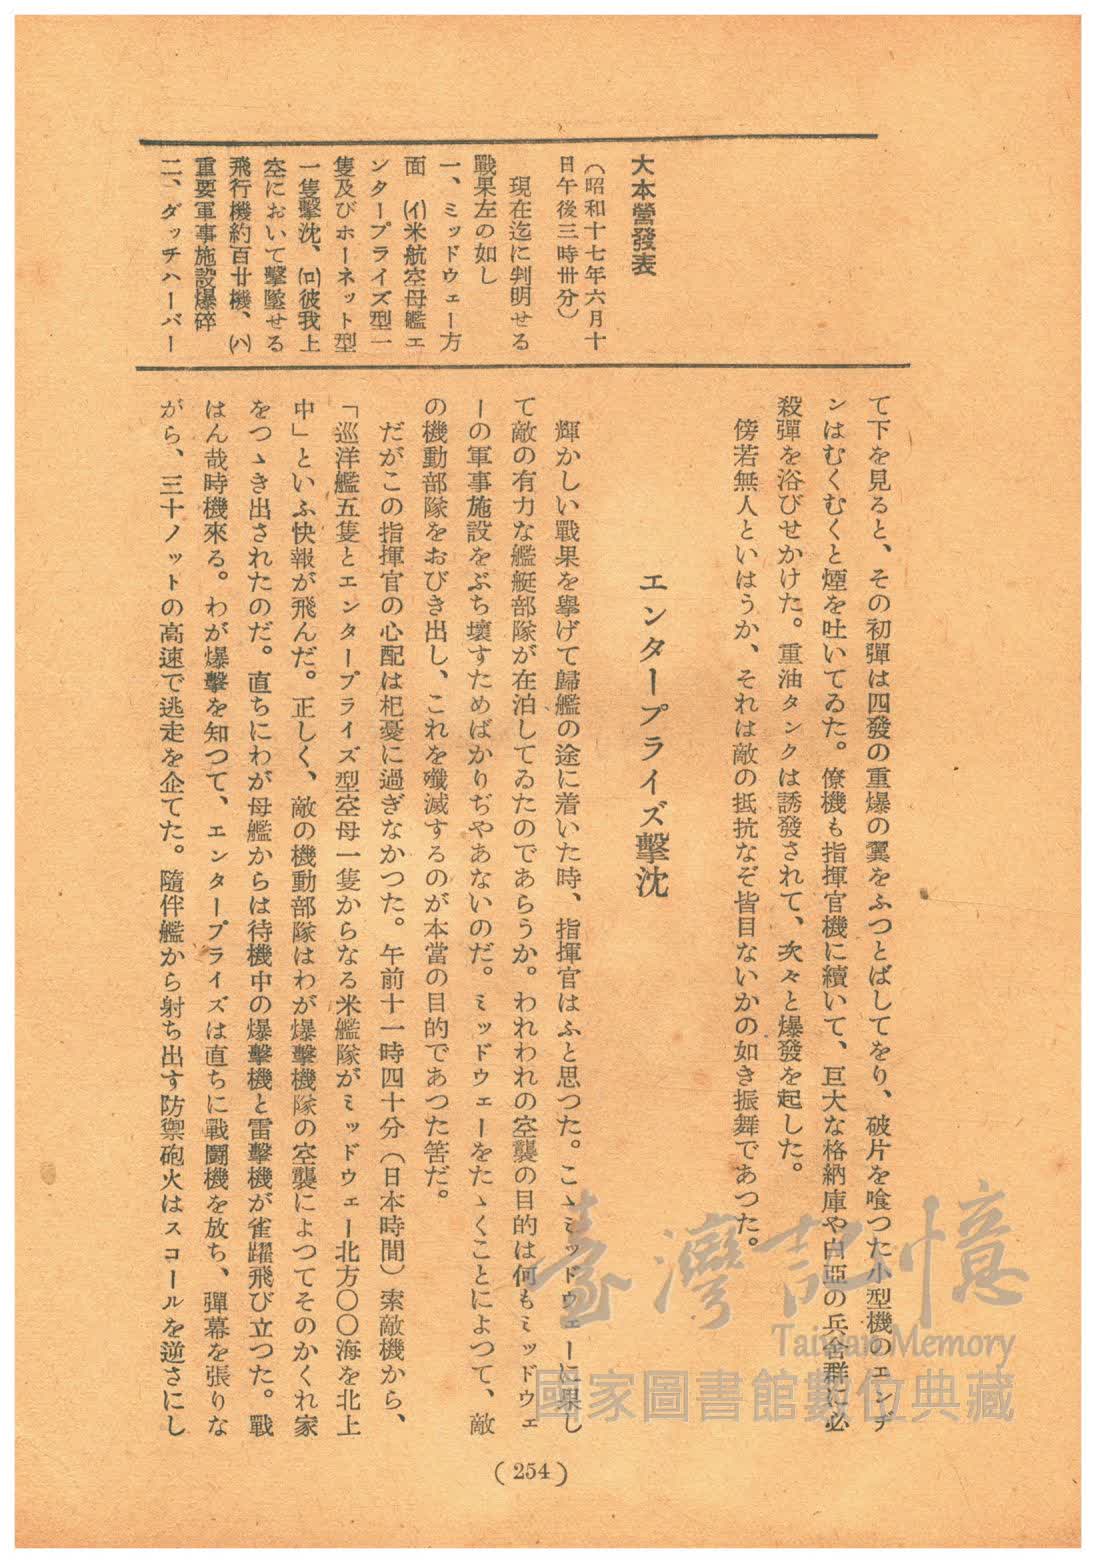 大本營發表
（昭和十七年六月十
日午後三時卅分）
現在迄に判明せる
戰果左の如し
一、ミッドウェー方
面　(イ)米航空母艦エ
ンタープライズ型一
隻及びホーネット型
一隻擊沈、(ロ)彼我上
空において擊墜せる
飛行機約百廿機、(ハ)
重要軍事施設爆碎
二、ダッチハーバー
て下を見ると、その初彈は四發の重爆の翼をふつとばしてをり、破片を喰つた小型機のエンヂ
ンはむくむくと煙を吐いてゐた。僚機も指揮官機に續いて、巨大な格納庫や白亞の兵舍群に必
殺彈を浴びせかけた。重油タンクは誘發されて、次々と爆發を起した。
傍若無人といはうか、それは敵の抵抗なぞ皆目ないかの如き振舞であつた。
エンタープライズ擊沈
輝かしい戰果を擧げて歸艦の途に着いた時、指揮官はふと思つた。こゝミッドウェーに果し
て敵の有力な艦艇部隊が在泊してゐたのであらうか。われわれの空襲の目的は何もミッドウェ
ーの軍事施設をぶち壞すためばかりぢやあないのだ。ミッドウェーをたゝくことによつて、敵
の機動部隊をおびき出し、これを殲滅するのが本當の目的であつた筈だ。
だがこの指揮官の心配は杞憂に過ぎなかつた。午前十一時四十分（日本時間）索敵機から、
「巡洋艦五隻とエンタープライズ型空母一隻からなる米艦隊がミッドウェー北方〇〇海を北上
中」といふ快報が飛んだ。正しく、敵の機動部隊はわが爆擊機隊の空襲によつてそのかくれ家
をつゝき出されたのだ。直ちにわが母艦からは待機中の爆擊機と雷擊機が雀躍飛び立つた。戰
はん哉時機來る。わが爆擊を知つて、エンタープライズは直ちに戰鬪機を放ち、彈幕を張りな
がら、三十ノットの高速で逃走を企てた。隨伴艦から射ち出す防禦砲火はスコールを逆さにし
(254)
臺灣記憶
Taiwan Memory
國家圖書館數位典藏